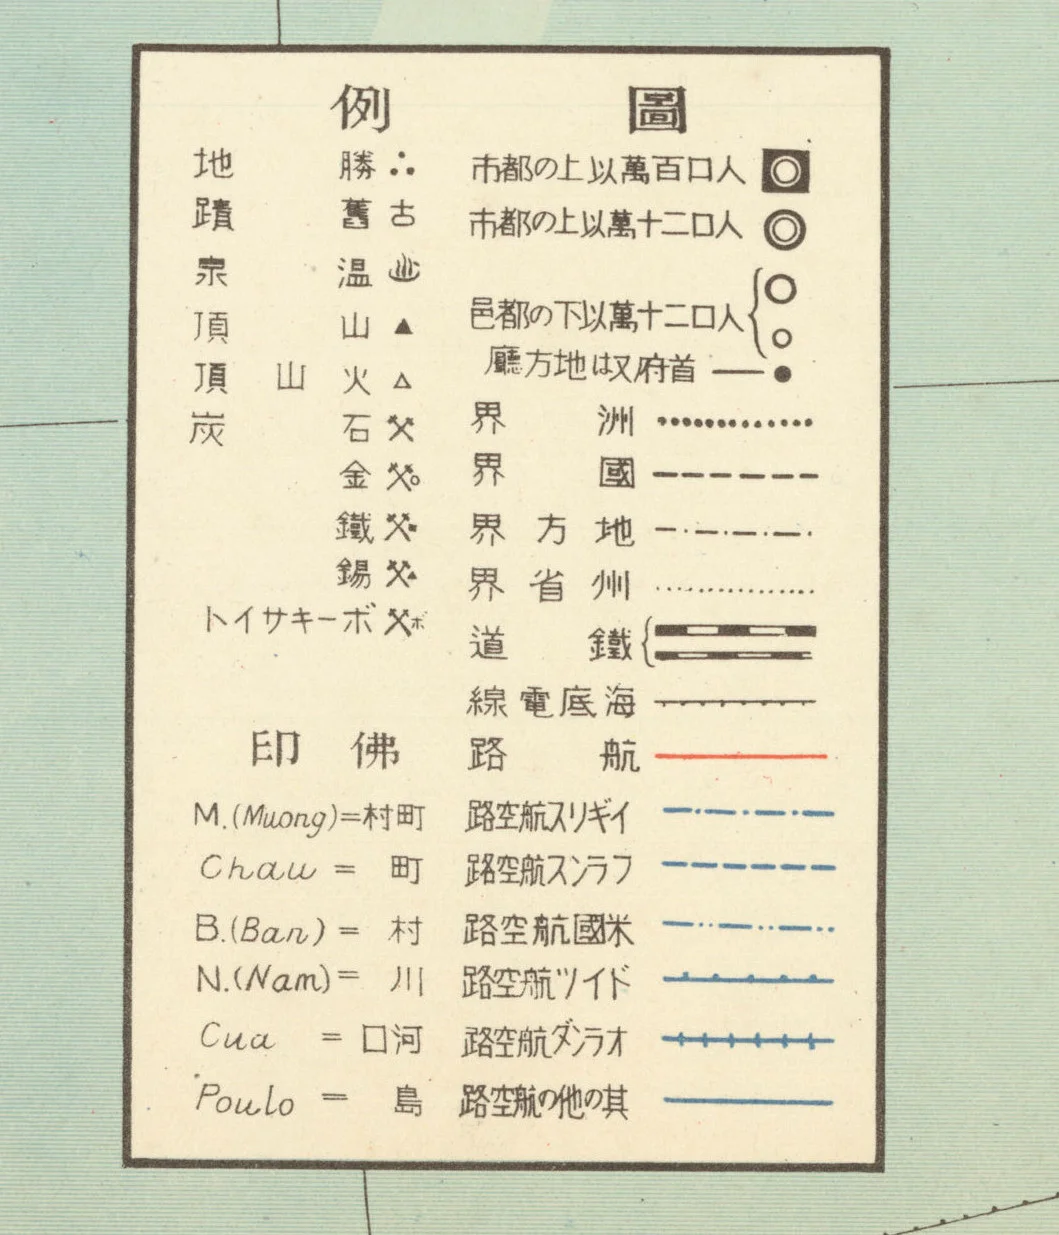 圖例
人口百萬以上の都市
人口二十萬以上の都市
人口二十萬以下の都邑
首府又は地方廳
洲界
國界
地方界
州省界
鐵道
海底電線
航路
イギリス航空路
フランス航空路
米國航空路
ドイツ航空路
オランダ航空路
其の他の航空路
勝地
古 舊蹟
温泉
山頂
火山頂
石炭
金
鐵
錫
ボ ボーキサイト
佛印
M.(Muong)=町村
Chau = 町
B.(Ban) = 村
N.(Nam) = 川
Cua = 河口
Poulo = 島